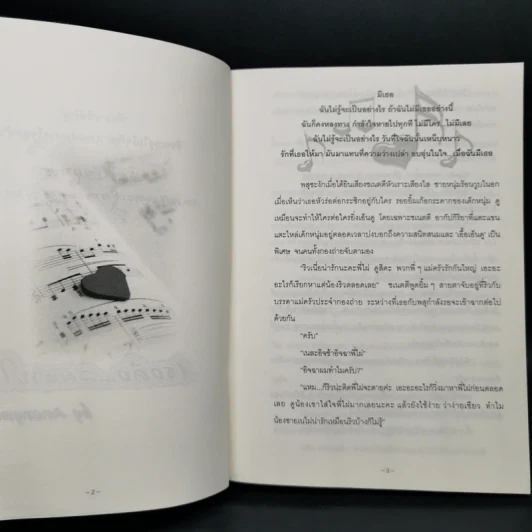 มีเธอ
ฉันไม่รู้จะเป็นอย่างไร ถ้าฉันไม่มีเธออย่างนี้
ฉันก็คงหลงทาง กำลังใจหายไปทุกที ไม่มีใคร...ไม่มีเลย
ฉันไม่รู้จะเป็นอย่างไร วันที่ใจฉันนั้นเหน็บหนาว
รักที่เธอให้มา มันมาแทนที่ความว่างเปล่า อบอุ่นในใจ...เมื่อฉันมีเธอ
พสุชะงักเมื่อได้ยินเสียงชเนตตีหัวเราะเสียงใส ชายหนุ่มร้อนวูบในอก
เมื่อเห็นว่าเธอหัวร่อต่อกระซิกอยู่กับใคร รอยยิ้มเก้อกระดากของเด็กหนุ่ม ดู
เหมือนจะทำให้ใครต่อใครยิ่งเอ็นดู โดยเฉพาะชเนตตี อากัปกิริยาที่แตะแขน
แตะไหล่เด็กหนุ่มอยู่ตลอดเวลาบ่งบอกถึงความสนิทสนมและ 'เอื้อเอ็นดู' เป็น
พิเศษ จนคนทั้งกองถ่ายจับตามอง
"ริวเนี่ยน่ารักนะคะพี่ไผ่ ดูสิคะ พวกพี่ๆ แม่ครัวรักกันใหญ่ เอะอะ
อะไรก็เรียกหาแต่น้องริวตลอดเลย" ชเนตตีพูดยิ้มๆ สายตาจับอยู่ที่ริวกับ
บรรดาแม่ครัวประจำกองถ่าย ระหว่างที่เธอกับพสุกำลังรอจะเข้าฉากต่อไป
ด้วยกัน
"ครับ"
"เนละอิจช้าอิจฉาพี่ไผ่"
"อิจฉาผมทำไมครับ?"
"แหม...ก็ริวน่ะติดพี่ไผ่จะตายค่ะ เอะอะอะไรก็วิ่งมาหาพี่ไผ่ก่อนตลอด
เลย ดูน้องเขาใส่ใจพี่ไผ่มากเลยนะคะ แล้วยังใช้ง่าย ว่าง่ายเชียว ทำไม
น้องชายเนไม่น่ารักเหมือนริวบ้างก็ไม่รู้"
-2-
-3-